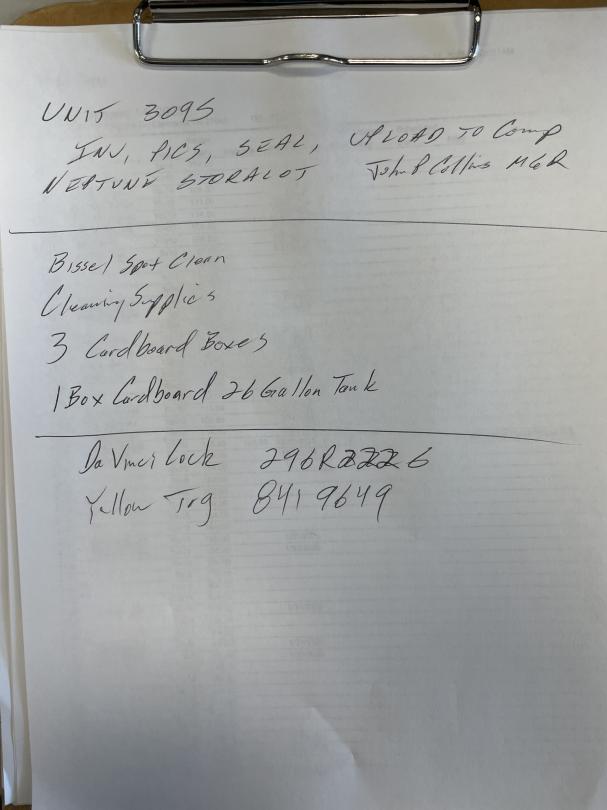 UNIT 3095
INV, PICS, SEAL, UPLOAD TO Comp
NEPTUNE STORALOT John P Collins MGR
Bissel Spot Clean
Cleaning Supplies
3 Cardboard Boxes
1 Box Cardboard 26 Gallon Tank
Da Vinci Lock 296R2226
Yellow Tag 8419649